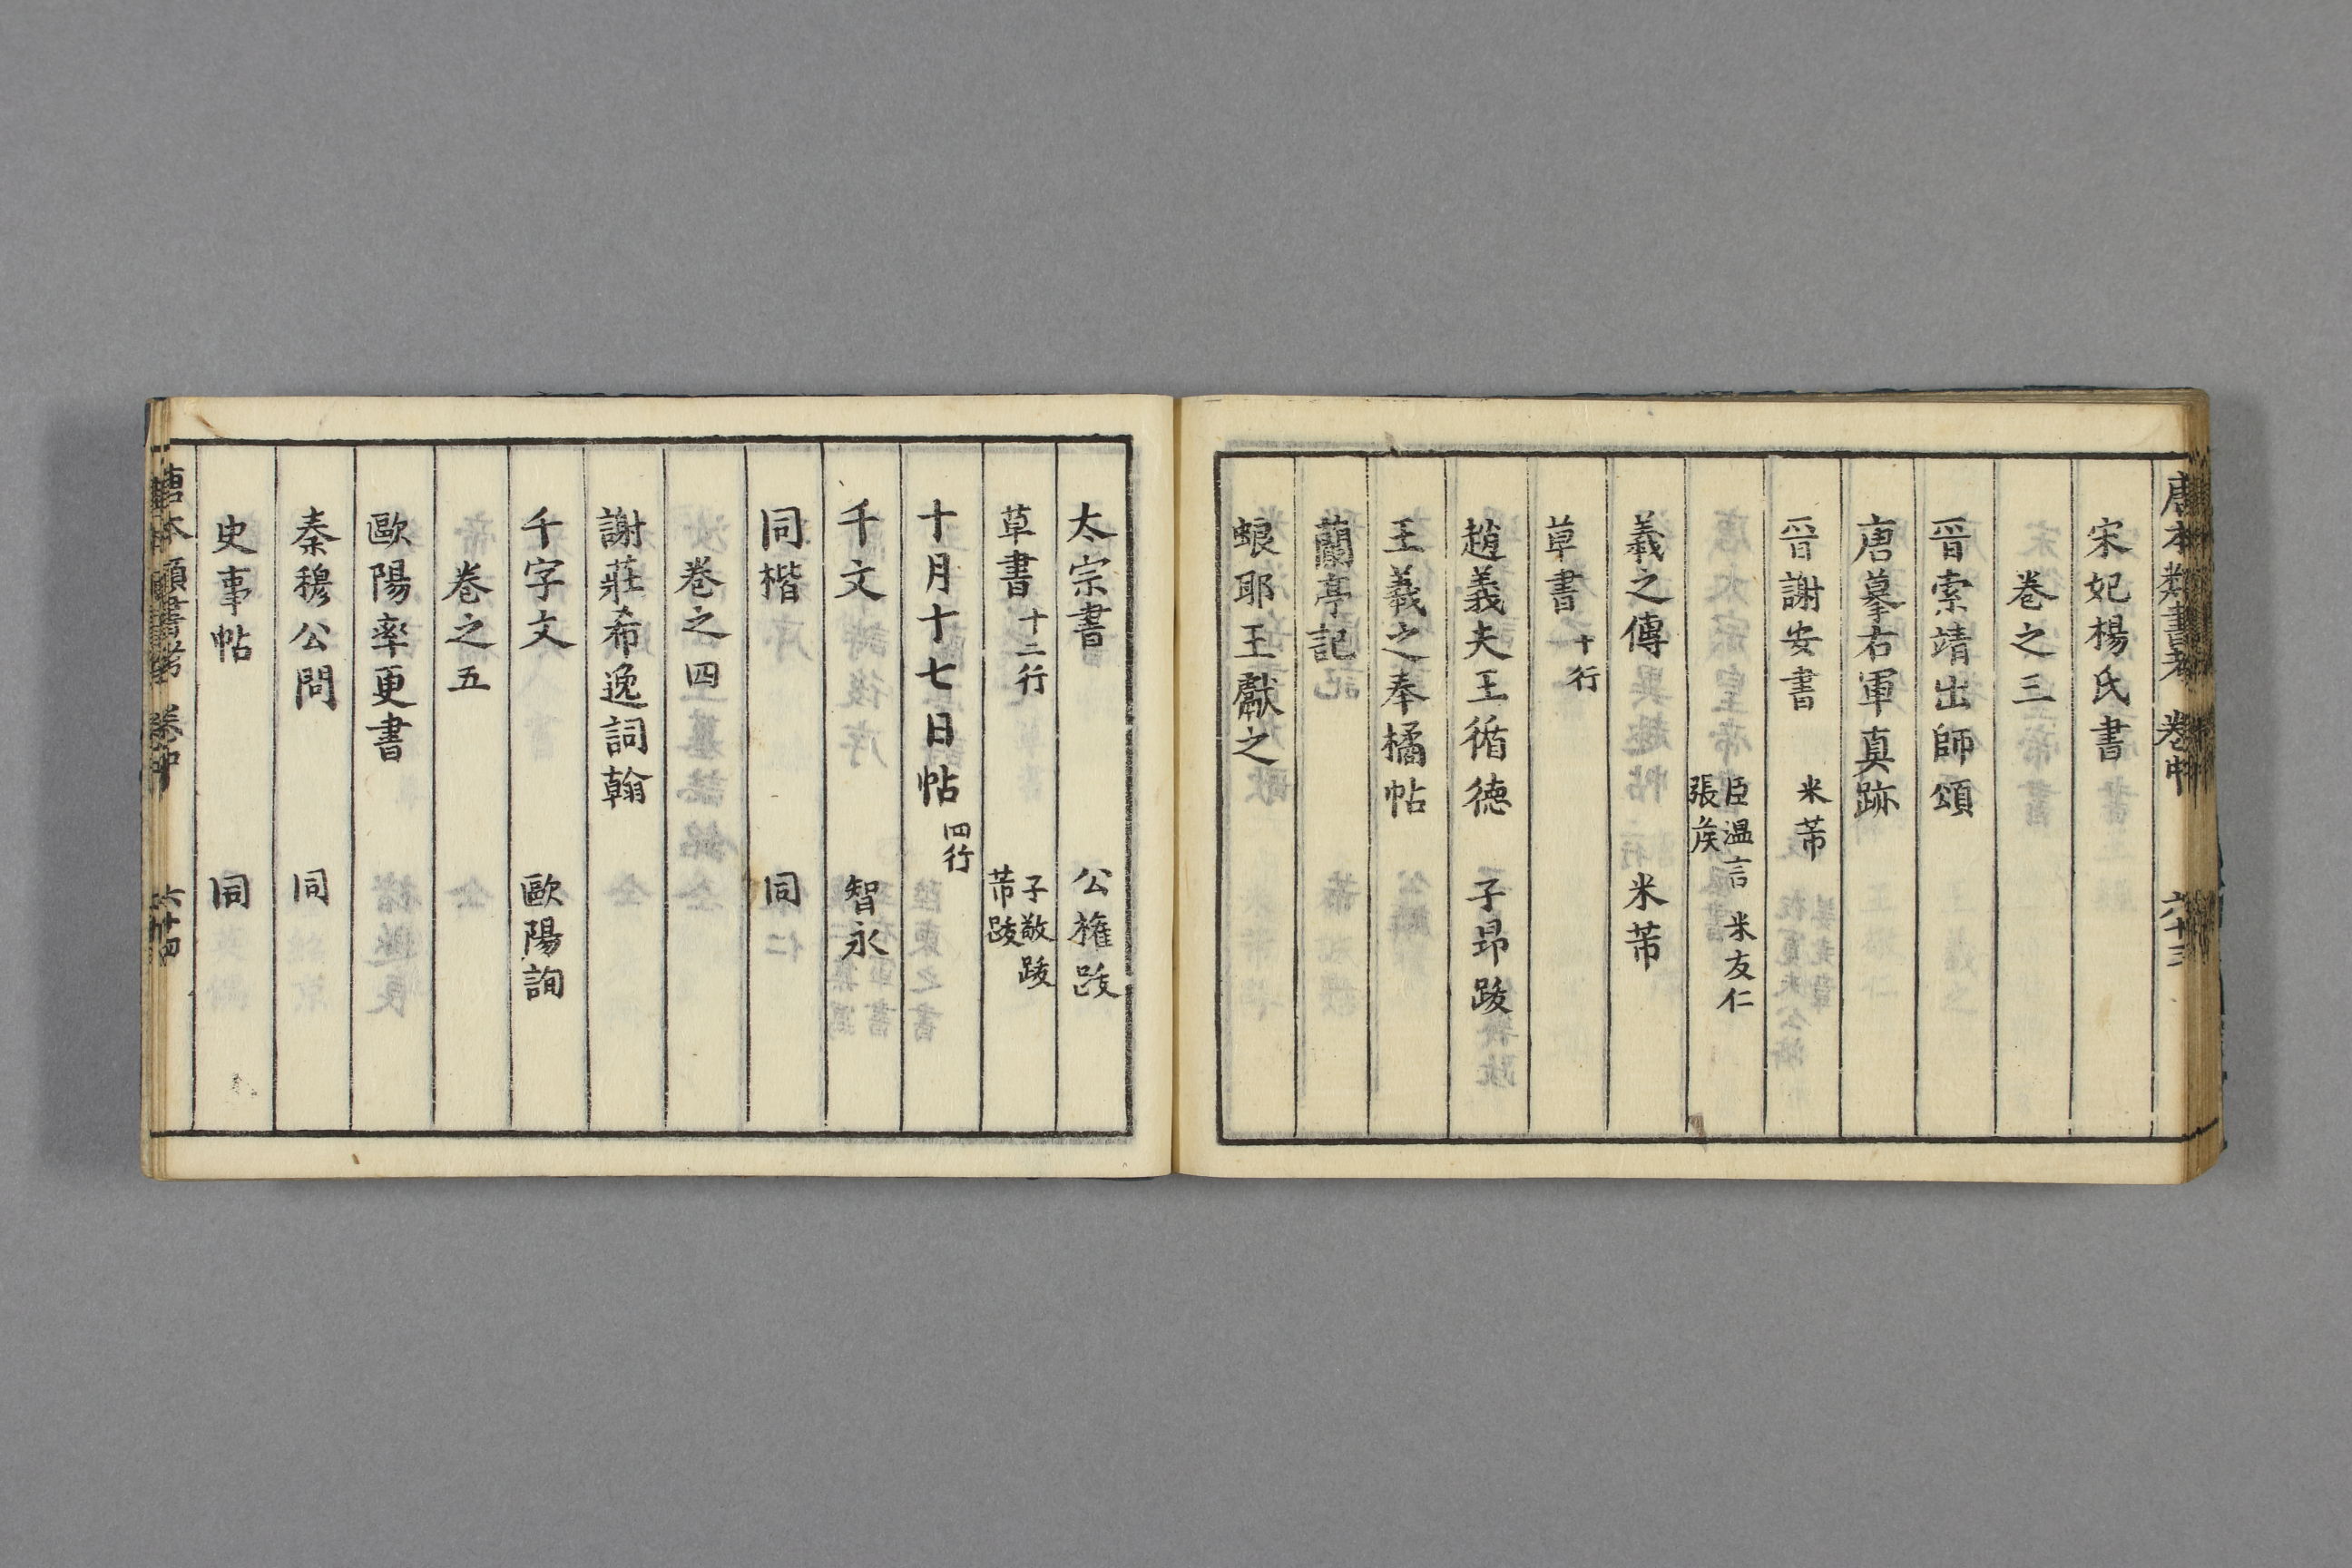 唐本類書考 卷中 六十三
宋妃楊氏書
卷之三
晉索靖出師頌
唐摹右軍真跡
晉謝安書 米芾
臣温言 米友仁
張矦
羲之傳 米芾
草書 十行
趙義夫王循德 子昻跋
王羲之奉橘帖
蘭亭記
蜋耶王獻之
太宗書 公權跋
草書 十二行 子敬跋
芾跋
十月十七日帖 四行
千文 智永
同楷 同
卷之四
謝莊希逸詞翰
千字文 歐陽詢
卷之五
歐陽率更書
秦穆公問 同
史事帖 同
唐本類書考 卷中 六十四